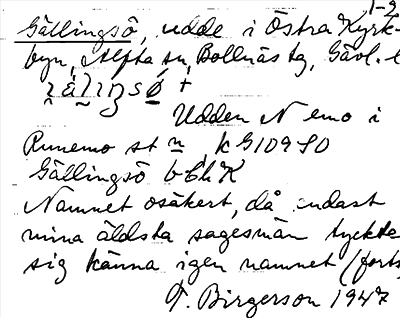 1-2
Gällingsö, udde i Östra Kyrk-
byn, Alfta sn, Bollnäs tg, Gävl. l
Udden N emo i
Runemo st n, k G10980
Gällingsö bEhK
Namnet osäkert, då endast
mina äldsta sagesmän tyckte
sig känna igen namnet (forts
T. Birgerson 1947